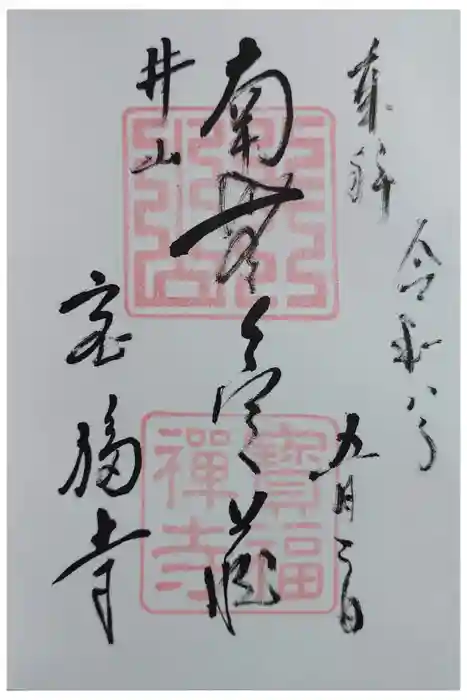 奉拝
令和八年
九月 日
南無虚空蔵
寶福
禪寺
井山
宝福寺